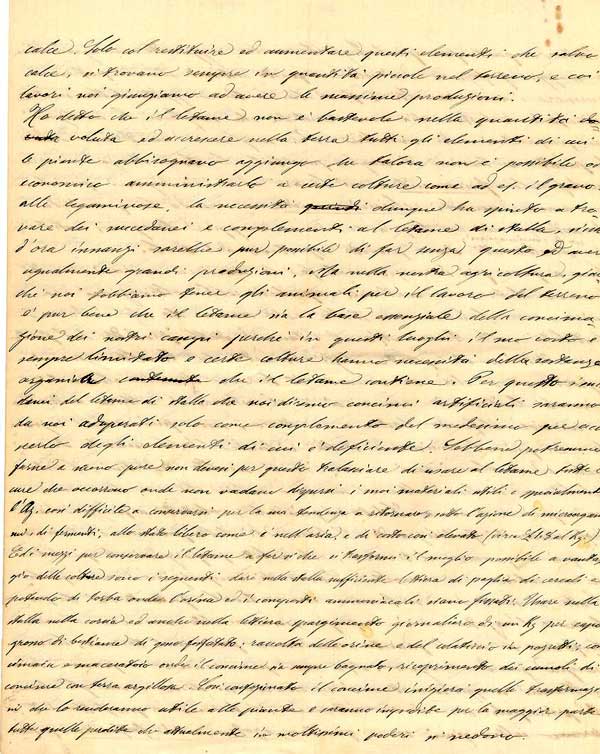 calce. Solo col restituire ed aumentare questi elementi che salvo
calce, si trovano sempre in quantità piccole nel terreno, e coi
lavori noi giungiamo ad avere le massime produzioni.
Ho detto che il letame non è bastevole nella quantità
voluta ed accrescere nella terra tutti gli elementi di cui
le piante abbisognano aggiungo che talora non è possibile o
economico amministrarlo a certe colture come ad es. il grano
alle leguminose. la necessità quindi dunque ha spinto a tro-
vare dei succedanei e complementi al letame di stalla, sicchè
d'ora innanzi sarebbe pur possibile di far senza questo ed aver
ugualmente grandi produzioni. Ma nella nostra agricoltura, giac-
chè noi dobbiamo tener gli animali per il lavoro del terreno
è pur bene che il letame sia la base essenziale della concima-
zione dei nostri campi perchè in questi luoghi il suo costo è
sempre limitato e certe colture hanno necessità della sostanza
organica contenuta che il letame contiene. Per questo i succe-
danei del letame di stalla che noi diciamo concimi artificiali saranno
da noi adoperati solo come complemento del medesimo per
degli elementi di cui è deficiente. Sebbene potremmo
farne a meno pure non devesi per questo tralasciare di usare al letame tutte le
cure che occorrono onde non vadano dispersi i suoi materiali utili e specialmente
l'Az. così difficile a conservarsi per la sua tendenza a ritornare, sotto l'azione di microrgani-
smi, di fermenti, allo stato libero come è nell'aria, e di costo così elevato (circa £ 1.5 al Kg.)
Ed i mezzi per conservare il letame e far sì che si trasformi il meglio possibile a vantag-
gio delle colture sono i seguenti: dare nella stalla sufficiente lettiera di paglia di cereali e
potendo di torba onde l'orina ed i composti ammoniacali siano fissati. Usare nella
stalla nella corsia ed anche nella lettiera spargimento giornaliero di un Kg per capo
grosso di bestiame di gesso fosfatato: raccolta delle orine e del colaticcio in pozzetti; con-
cimaia e maceratoio onde il concime sia sempre bagnato, ricoprimento dei cumuli di
concime con terra argillosa. Così confezionato il concime subirà quelle trasformazio-
ni che lo renderanno utile alle piante e saranno impedite per la maggior parte
tutte quelle perdite che attualmente in moltissimi poderi si vedono.